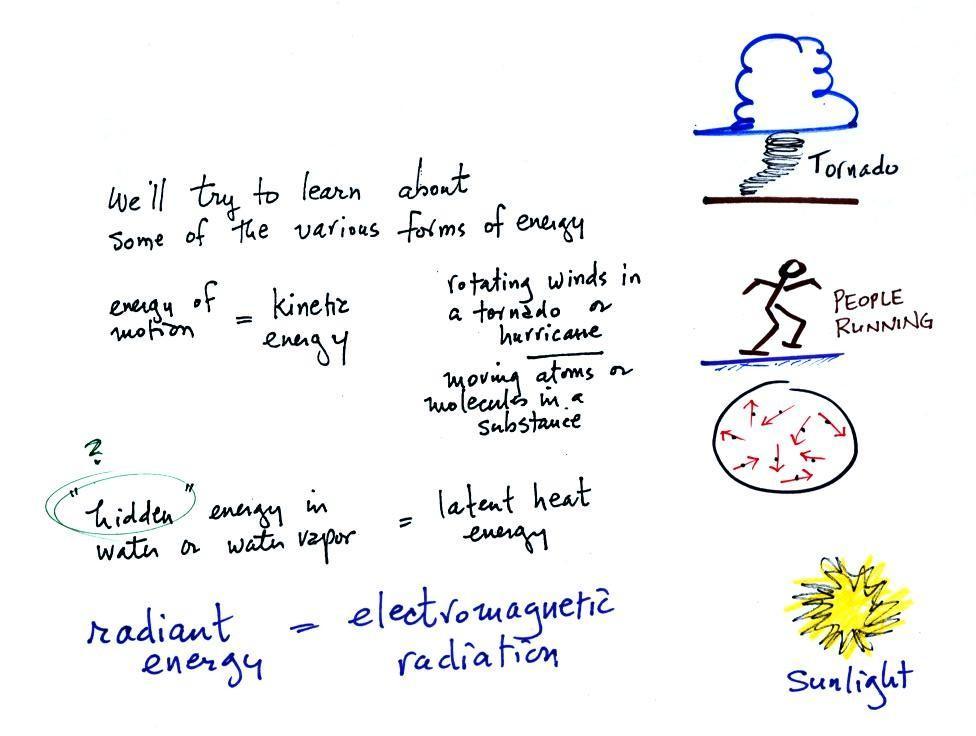 We'll try to learn about
some of the various forms of energy
energy of
motion
= kinetic
energy
rotating winds in
a tornado or
hurricane
moving atoms or
molecules in a
substance
Tornado
PEOPLE
RUNNING
?
"hidden" energy in
water or water vapor
= latent heat
energy
radiant
energy
= electromagnetic
radiation
Sunlight